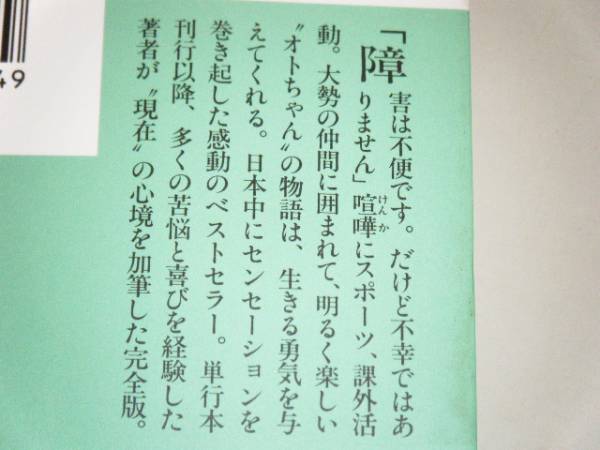 「障害は不便です。だけど不幸ではあ
りません」喧嘩にスポーツ、課外活
動。大勢の仲間に囲まれて、明るく楽しい
〝オトちゃん〟の物語は、生きる勇気を与
えてくれる。日本中にセンセーションを
巻き起した感動のベストセラー。単行本
刊行以降、多くの苦悩と喜びを経験した
著者が〝現在〟の心境を加筆した完全版。
けんか
49